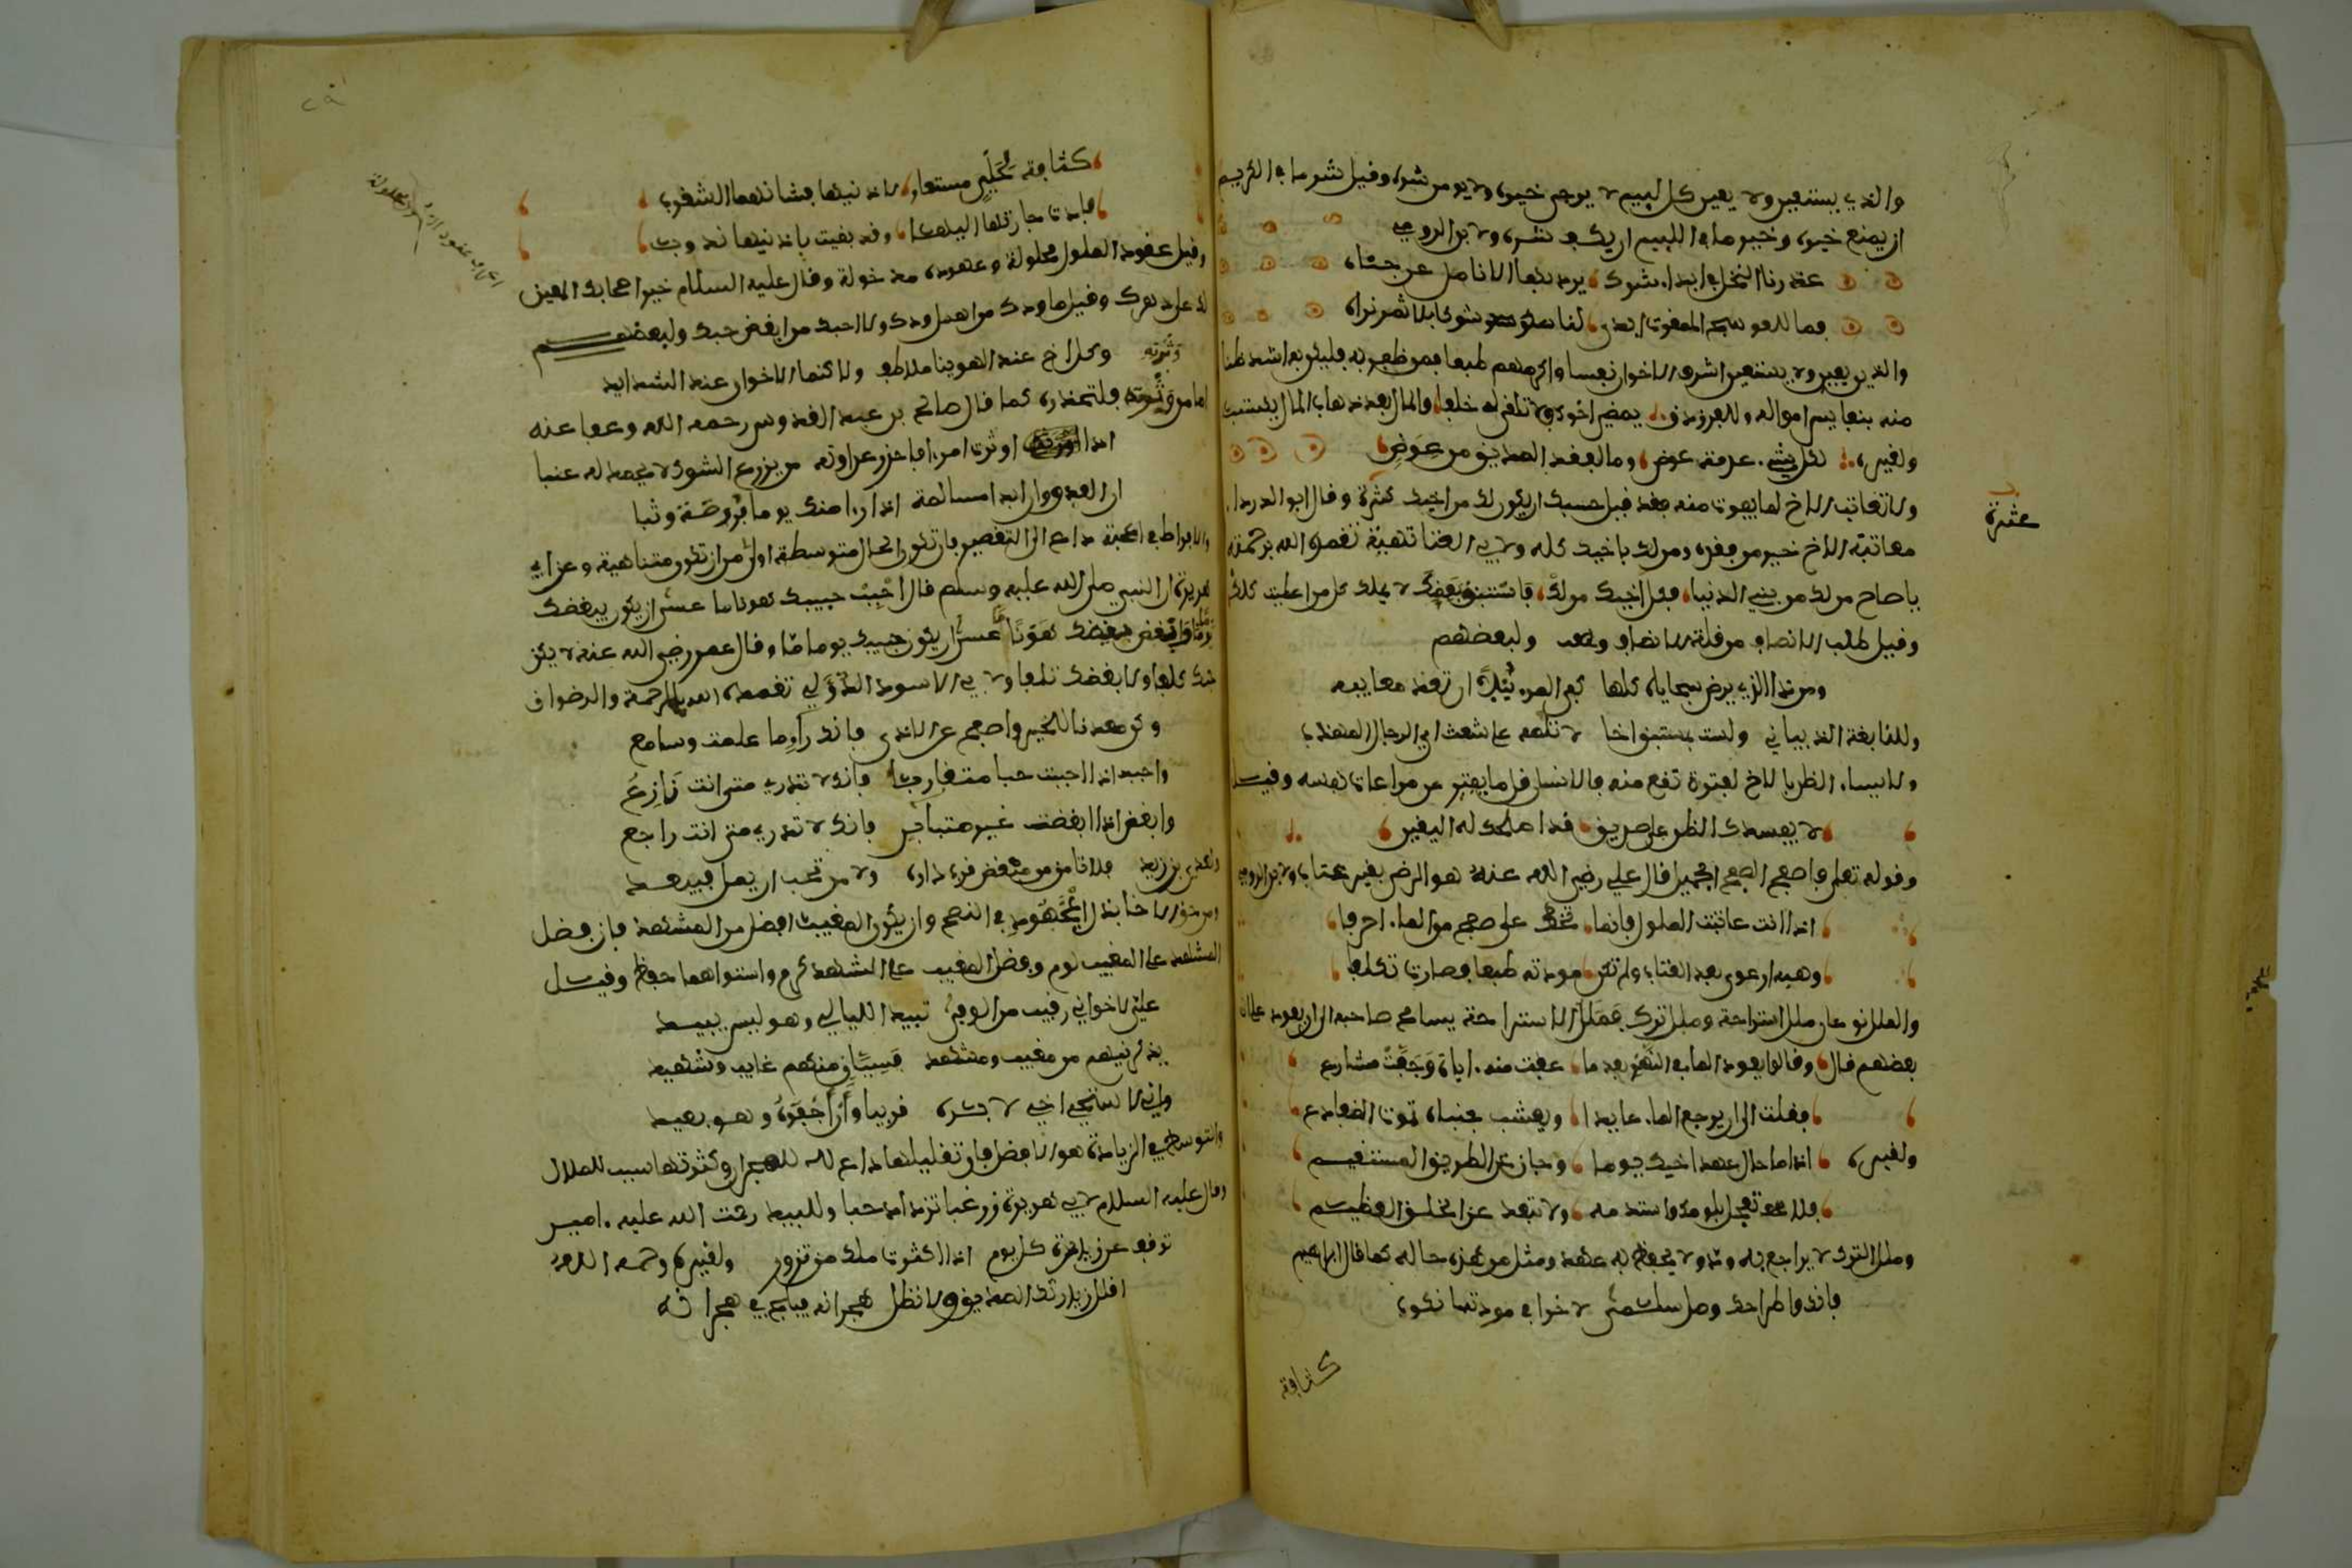 والذي يستعين ولا يعين كل لييم لا يرجى خيره ولا يومن شره وقيل شر ما في الكريم
ان يمنع خيره وخير ما في اللييم ان يكف شره ولابن الرومي
عذرنا النخل في ابداء شوك يرد به الانامل عن جناه
فما للعوسج الملعون ابدى لنا شوكا بلا ثمر نراه
والذي يعين ولا يستعين اشرف الاخوان نفسا واكرمهم طبعا فمن ظفر به فليكن به اشد ظنا
منه بنفايس امواله وللفرزدق يمضي اخوك ولا تلقى له خلفا والمال بعد ذهاب المال يكتسب
ولغيره لكل شيء عدمته عوض وما لفقد الصديق من عوض
ولا تعاتب الاخ لما يفوت منه فقد قيل حسبك ان يكون لك من اخيك كثرة وقال ابو الدرداء
عثرة
معاتبة الاخ خير من فقده ومن لك باخيك كله ولابي العتاهية تغمده الله برحمته
ياصاح من لك من بني الدنيا بكل اخيك من لك فاستبق بعضك لا يملك كل من اعطيت كلك
وقيل طلب الانصاف من قلة الانصاف ولبعضهم
ومن ذا الذي يرضى سجاياه كلها كفى المرء نبلا ان تعد معايبه
وللنابغة الذبياني ولست بمستبق اخا لا تلمه على شعث اي الرجال المهذب
ولا تسيء الظن بالاخ لفترة تقع منه فالانسان قل ما يفتر عن مراعات نفسه وقيل
لا يفسدك الظن على صديق قد اصلحك له اليقين
وقوله تعلى فاصفح الصفح الجميل قال علي رضي الله عنه هو الرضى بغير عتاب ولابن الرومي
اذا انت عاتبت الملول فانما تخط على صحف من الماء احرفا
وهبه ارعوى بعد العتاب ولم تكن مودته طبعا فصارت تكلفا
والملل نوعان ملل استراحة وملل ترك فملل الاستراحة يسامح صاحبه الى ان يعود
بعضهم قال وقالوا يعود الماء في النهر بعد ما عفت منه اياة وجفت مشارع
فقلت الى ان يرجع الماء عايدا ويعشب جنباه تموت الضفادع
ولغيره اذا ما حال عهد اخيك يوما وحاز عن الطريق المستقيم
فلا تعجل بلومك واستدمه ولا تبعد عن الخلق العظيم
وملل الترك لا يراجع به ود ولا يحفظ به عهد ومثل من هذه حاله كما قال ابراهيم
فانك واطراحك وصل سلمى لاخرى في مودتها نكوب
كثاقبة
كثاقبة لحلي مستعار لاذنيها فشانهما الثقوب
فادت حلي جارتها اليها وقد بقيت باذنيها ندوب
وقيل عقود الملول محلولة وعهوده مدخولة وقال عليه السلام خير اصحابك المعين
لك على دهرك وقيل ما ودك من اهمل ودك ولا احبك من ابغض حبك ولبعضهم
وكل اخ عند الهوينا ملاطف ولاكنما الاخوان عند الشدايد
اما من وترته فلتحذره كما قال صالح بن عبد القدوس رحمه الله وعفا عنه
وترته
اذا وترت امرءا فاحذر عداوته من يزرع الشوك لا يحصد له عنبا
ان العدو وان ابدا مسالمة اذا راء منك يوما فرصة وثبا
والافراط في المحبة داع الى التقصير فان تكون الحال متوسطة اولى من ان تكون متناهية وعن ابي
هريرة ان النبي صلى الله عليه وسلم قال احبب حبيبك هونا ما عسى ان يكون بغيضك
يوما ما وابغض بغيضك هونا ما عسى ان يكون حبيبك يوما ما وقال عمر رضي الله عنه لا يكن
حبك كلفا ولا بغضك تلفا ولابي الاسود الدؤلي تغمده الله بالرحمة والرضوان
وكن معدنا للخير واصفح عن الاذى فانك راء ما علمت وسامع
واحبب اذا احببت حبا متقاربا فانك لا تدري متى انت نازع
وابغض اذا ابغضت غير متباين فانك لا تدري متى انت راجع
ولعدي بن زيد فلا تامن من مبغض قرب داره ولا من محب ان يمل فيبعد
ومن حق الاخا بذل المجهود في النصح وان يكون المغيب افضل من المشهد فان فضل
المشهد على المغيب لوم وفضل المغيب على المشهد كرم واستواهما حفاظ وقيل
علي لاخواني رقيب من الوفى تبيد الليالي وهو ليس يبيد
يذكرنيهم من مغيب ومشهد فسيان منهم غايب وشهيد
واني لاستحيي اخي لا بشره قريبا وان اجفوه وهو بعيد
والتوسط في الزيادة هو الافضل فان تقليلها داع للهجران وكثرتها سبب للملال
وقال عليه السلام لابي هريرة زر غبا تزدد حبا وللبيد رحمت الله عليه امين
توقف عن زيارة كل يوم اذا اكثرت ملك من تزور ولغيره رحمه الله
اقلل زيارتك الصديق ولا تطل هجرانه فيلج في هجرانه